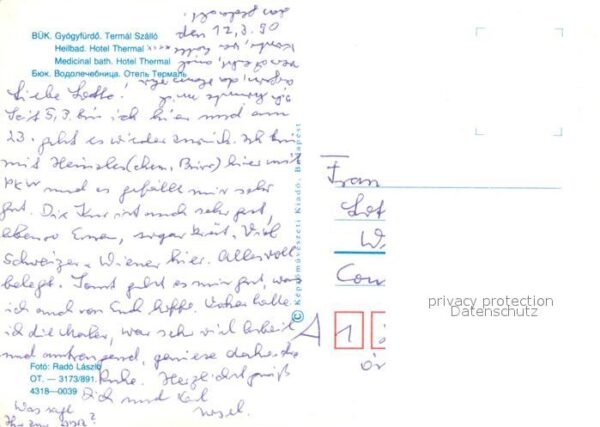 BÜK. Gyógyfürdő. Termál Szálló
Heilbad. Hotel Thermal ****
Medicinal bath. Hotel Thermal
Бюк. Водолечебница. Отель Термаль
den 12,3.90
Liebe Lotte!
Seit 5,3. bin ich hier und am
23. geht es wieder zurück. Ich bin
mit (chem. Büro) hier mit
PKW und es gefällt mir sehr
gut. Die Kur ist auch sehr gut,
ebenso Essen, sogar Diät. Viel
Schweizer u. Wiener hier. Alles voll
belegt. Sonst geht es mir gut, was
ich auch von Euch hoffe. Vorher hatte
ich die Maler, war sehr viel Arbeit
und anstrengend, geniese daher die
Ruhe. Herzlichst grüßt
Dich und Karl
Was sagt
Ihr zur DDR?
Képzőművészeti Kiadó, Budapest
Fotó: Radó László
OT. — 3173/891.
4318—0039
Frau
Lot
W
Con
A 1
privacy protection
Datenschutz